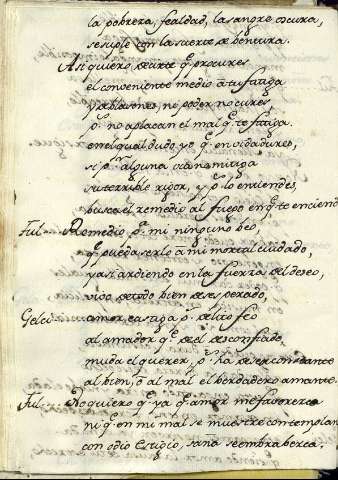 la pobreza, fealdad, la sangre escura,
se suple con la suerte de bentura.
Asi quiero decirte q̃ procures
el conveniente medio a tu fatiga
y ablasones, ni poder, no cures,
p.. no aplacan el mal q̃ te fatiga.
en el qual dudo yo q̃ en vida dures,
si p.r alguna via no mitiga
su terrible rigor, y p.. lo entiendes,
busca el remedio al fuego en q̃ te enciend
Ful- Remedio p.a mi ninguno beo,
q̃ pueda serlo a mi mortal cuidado,
ya si ardiendo en la fuerza del deseo,
vivo de todo bien desesperado,
Gelcid amor castiga p.r delito feo
al amador q.e de el desconfiado,
muda el querer, p.. ha de ser constante
al bien, o al mal el berdadero amante
Ful- No quiero q̃ ya q̃ amor me faborezca
ni q̃ en mi mal se muestre contemplan
con odio Estigio, saña se embrabezca,